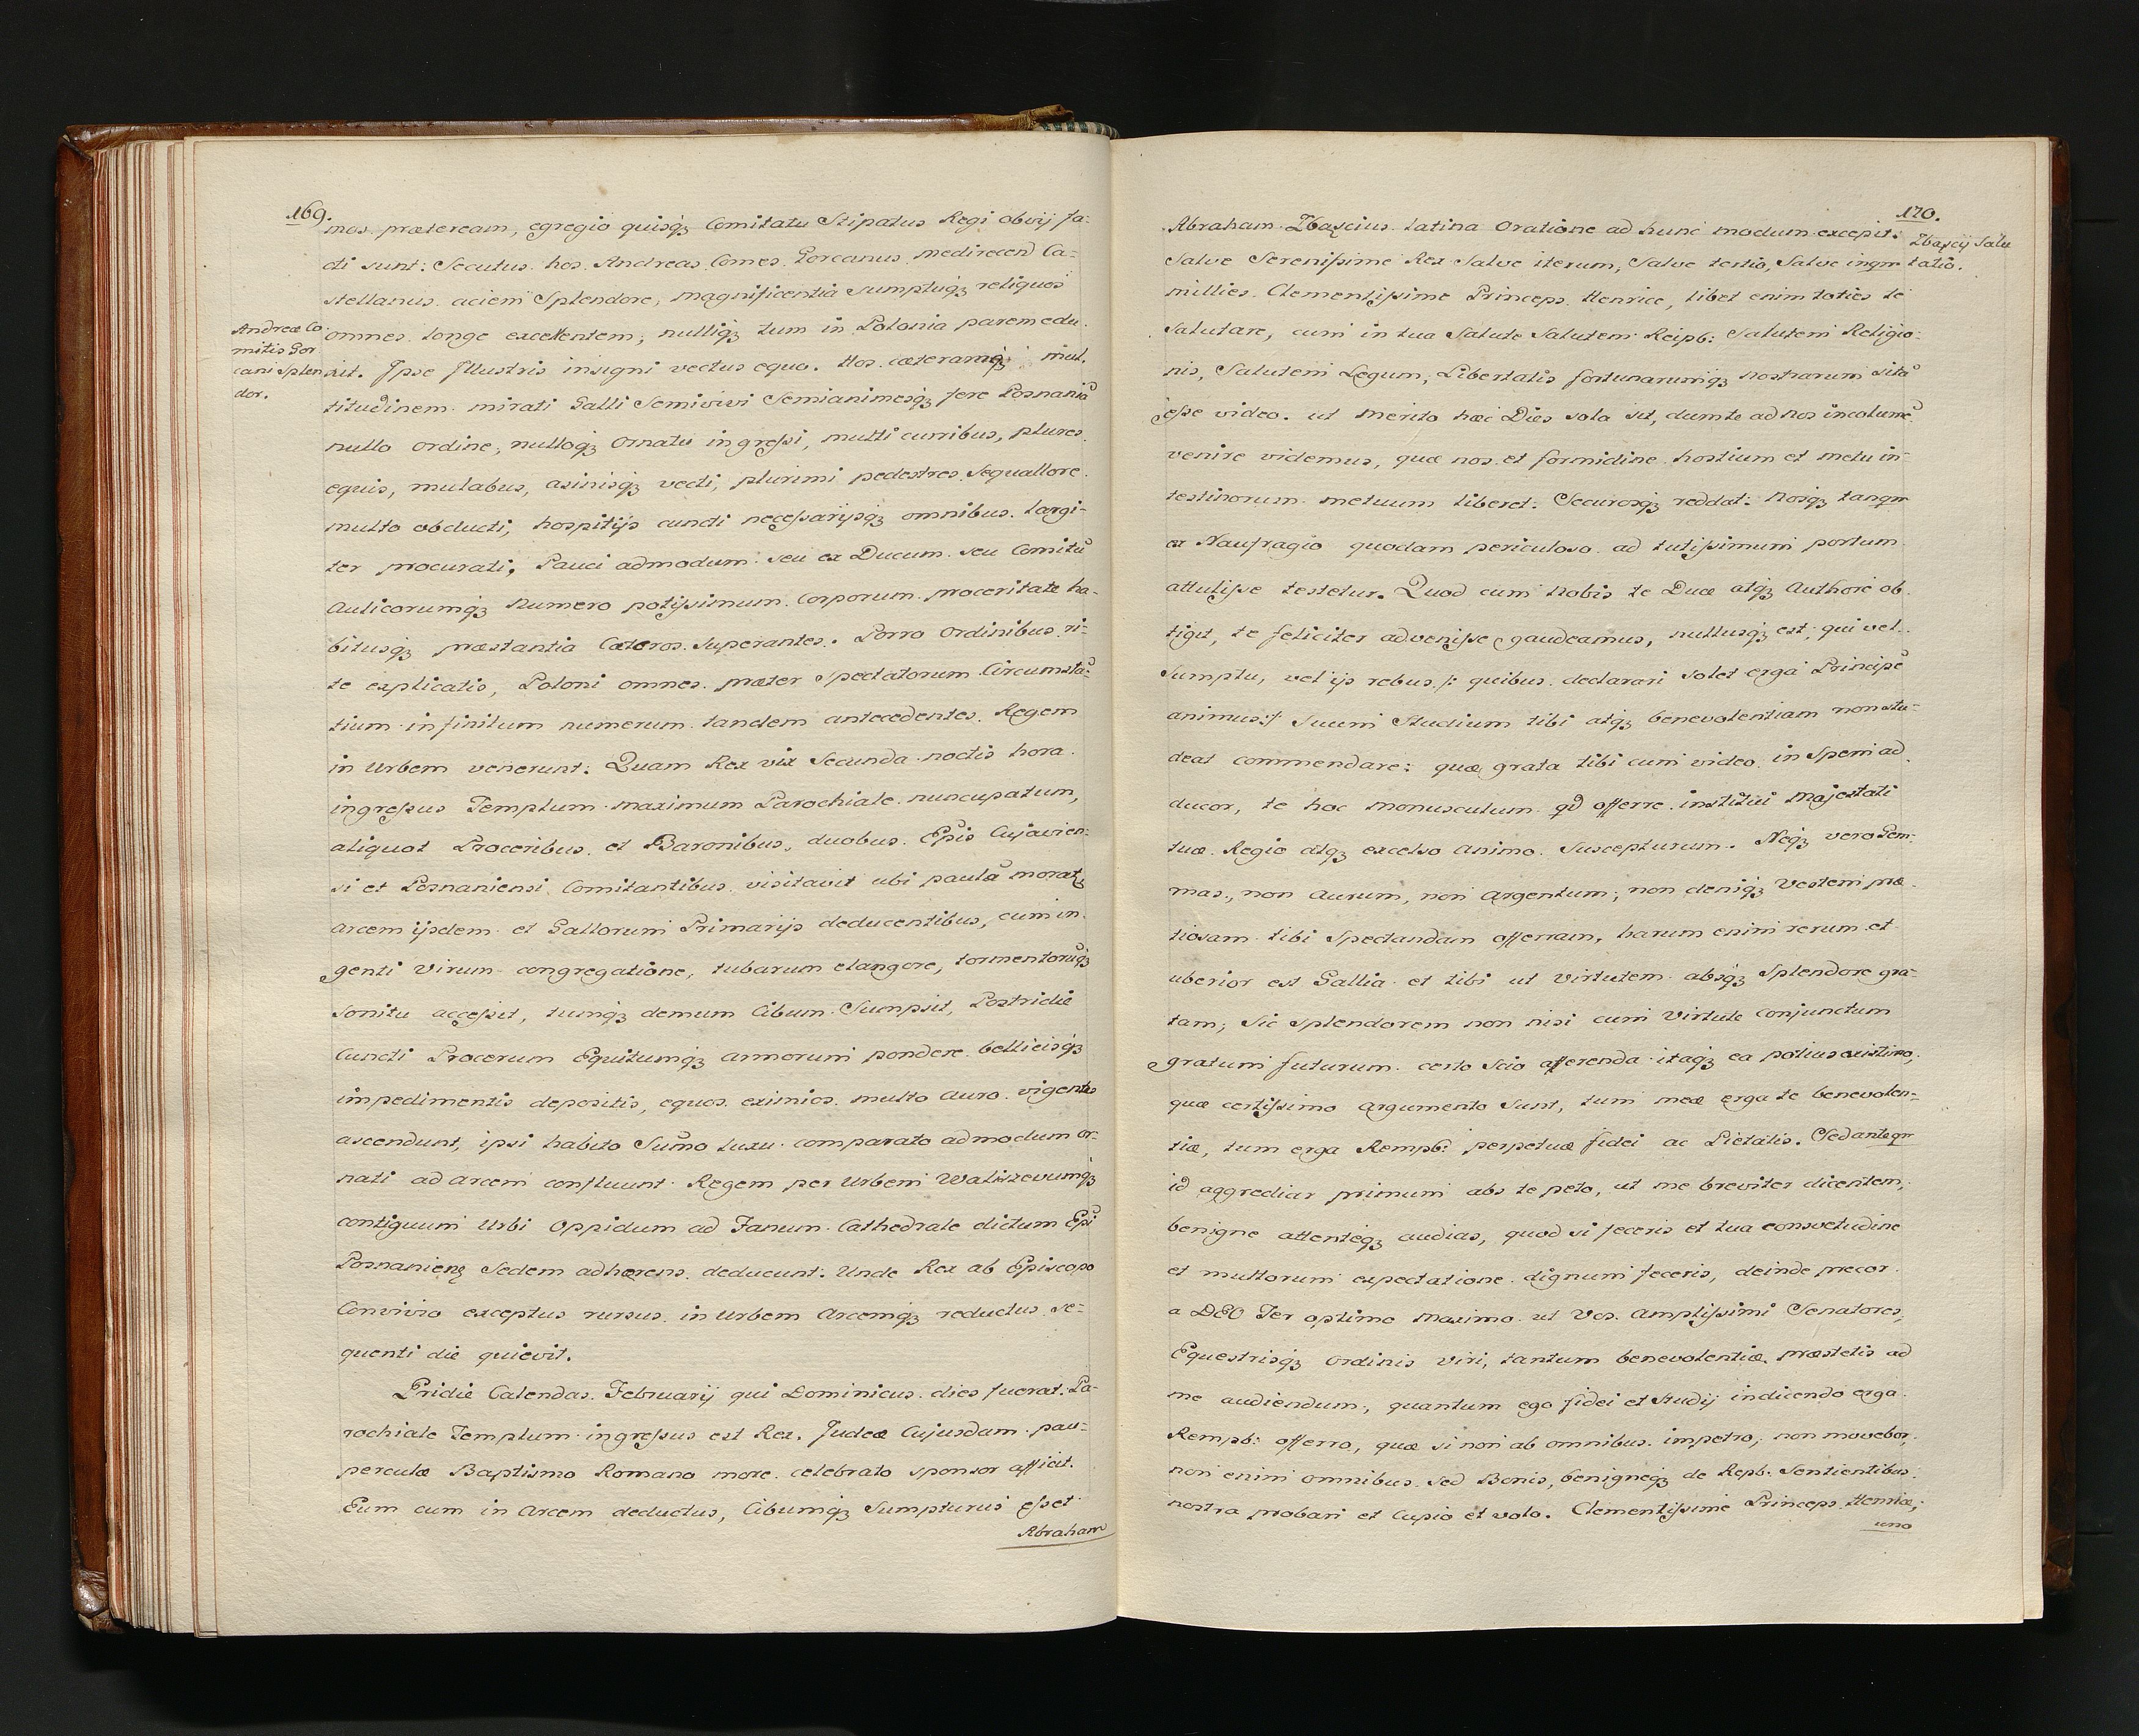 169.
mos præteream, egregio quisqꝫ Comitatu Stipatus Regi obvij fa-
cti sunt: Secutus hos Andreas Comes Gorcanus Medirecen Ca-
stellanus aciem Splendore, magnificentia Sumptuqꝫ reliquos
omnes longe excellentem, nulliqꝫ tum in Polonia parem edu-
Andreæ Co
mitis Gor
cani Splen
dor.
xit. Ipse Illustris insigni vectus equo. Hos cæteramqꝫ mul-
titudinem mirati Galli Semivivi Semianimesqꝫ fere Posnaniā
nullo ordine, nulloqꝫ Ornatu ingressi, multi curribus, plures
equis, mulabus, asinisqꝫ vecti, plurimi pedestres Sequallore
multo obducti, hospitijs cuncti necessarijsqꝫ omnibus largi-
ter procurati; Pauci admodum seu ex Ducum seu Comitū
Aulicorumqꝫ Numero potissimum Corporum proceritate ha-
bitusqꝫ præstantia Cæteros Superantes. Porro Ordinibus ri-
te explicatis, Poloni omnes præter Spectatorum Circumstā-
tium infinitum numerum tandem antecedentes Regem
in Urbem venerunt: Quam Rex vix Secunda noctis hora
ingressus Templum maximum Parochiale nuncupatum,
aliquot Proceribus et Baronibus, duobus Epīs Cujavien-
si et Posnaniensi Comitantibus visitavit ubi paulū moratꝫ
arcem ijsdem et Gallorum Primarijs deducentibus, cum in-
genti Virum congregatione, tubarum clangore, tormentorūqꝫ
sonitu accessit, tumqꝫ demum Cibum Sumpsit, Postridie
Cuncti Procerum Equitumqꝫ armorum pondere bellicisqꝫ
impedimentis depositis, equos eximios multo auro vigentes
ascendunt, ipsi habito Sumō luxu comparato admodum or-
nati ad arcem confluunt Regem per Urbem Waliszevumqꝫ
contiguum Urbi Oppidum ad Fanum Cathedrale dictum Epī
Posnanienꝫ Sedem adhærens deducunt: Unde Rex ab Episcopo
Convivio exceptus rursus in Urbem Arcemqꝫ reductus se-
quenti die quievit.
Pridie Calendas Februarij qui Dominicus dies fuerat Pa-
rochiale Templum ingressus est Rex. Judeæ Cujusdam pau-
perculæ Baptismo Romano more celebrato sponsor afficit.
Eum cum in Arcem deductus, Cibumqꝫ Sumpturus esset
Abraham
170.
Abraham Zbaxcius Latina Oratione ad hunc modum excepit:
Zbaxcij Salu
tatio.
Salve Serenissime Rex Salve iterum, Salve tertio, Salve inqm
millies Clementissime Princeps Henrice, libet enim toties te
Salutare, cum in tua Salute Salutem Reipb: Salutem Religio-
nis, Salutem Legum, Libertatis fortunarumqꝫ nostrarum sitā
esse video. ut merito hæc Dies sola sit, dum te ad nos incolumē
venire videmus, quæ nos et formidine hostium et metu in-
testinorum metuum liberet: Securosqꝫ reddat: Nosqꝫ tanqm
ex Naufragio quodam periculoso ad tutissimum portum
attulisse testetur. Quod cum Nobis te Duce atqꝫ Authore ob-
tigit, te feliciter advenisse gaudeamus, nullusqꝫ est, qui vel
Sumptu, vel ijs rebus /: quibus declarari solet erga Principē
animus:/ Suum Studium tibi atqꝫ benevolentiam non stu-
deat commendare: quæ grata tibi cum video in Spem ad-
ducor, te hoc Monusculum qd offerre institui Majestati
tuæ Regio atqꝫ excelso Animo Suscepturum. Neqꝫ vero Gem-
mas, non Aurum, non Argentum, non deniqꝫ Vestem præ-
tiosam tibi Spectandam offerram, harum enim rerum et
uberior est Gallia et tibi ut Virtutem absqꝫ Splendore gra-
tam, Sic Splendorem non nisi cum Virtute conjunctum
gratum futurum certo Scio afferenda itaqꝫ ea potius existimo,
quæ certissimo argumento Sunt, tum meæ erga te benevolen-
tiæ, tum erga Rempb: perpetuæ fidei ac Pietatis. Sed anteqm
id aggrediar primum abs te peto, ut me breviter dicentem,
benigne attenteqꝫ audias, quod si feceris et tua consvetudine
et multorum expectatione dignum feceris, deinde precor
a DEO Ter optimo Maximo ut Vos Amplissimi Senatores,
Equestrisqꝫ Ordinis Viri, tantum benevolentiæ præstetis ad
me audiendum, quantum ego fidei et Studij in dicendo erga
Rempb: offerro, quæ si non ab omnibus impetro, non movebor,
non enim omnibus Sed Bonis, benigneqꝫ de Repb: Sentientibus
nostra probari et Cupio et volo. Clementissime Princeps Henrice,
uno